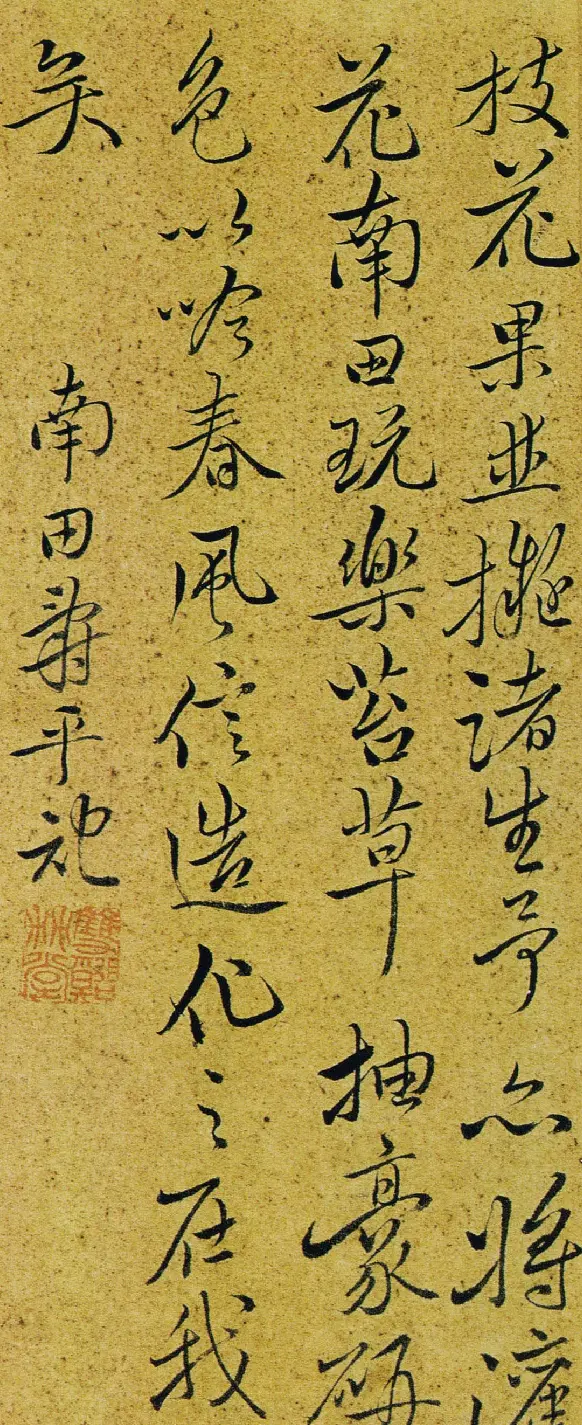 枝花果並擬諸生予亦將灌
花南田玩樂苔草抽豪研
色以吟春風信造化之在我
矣
南田壽平記